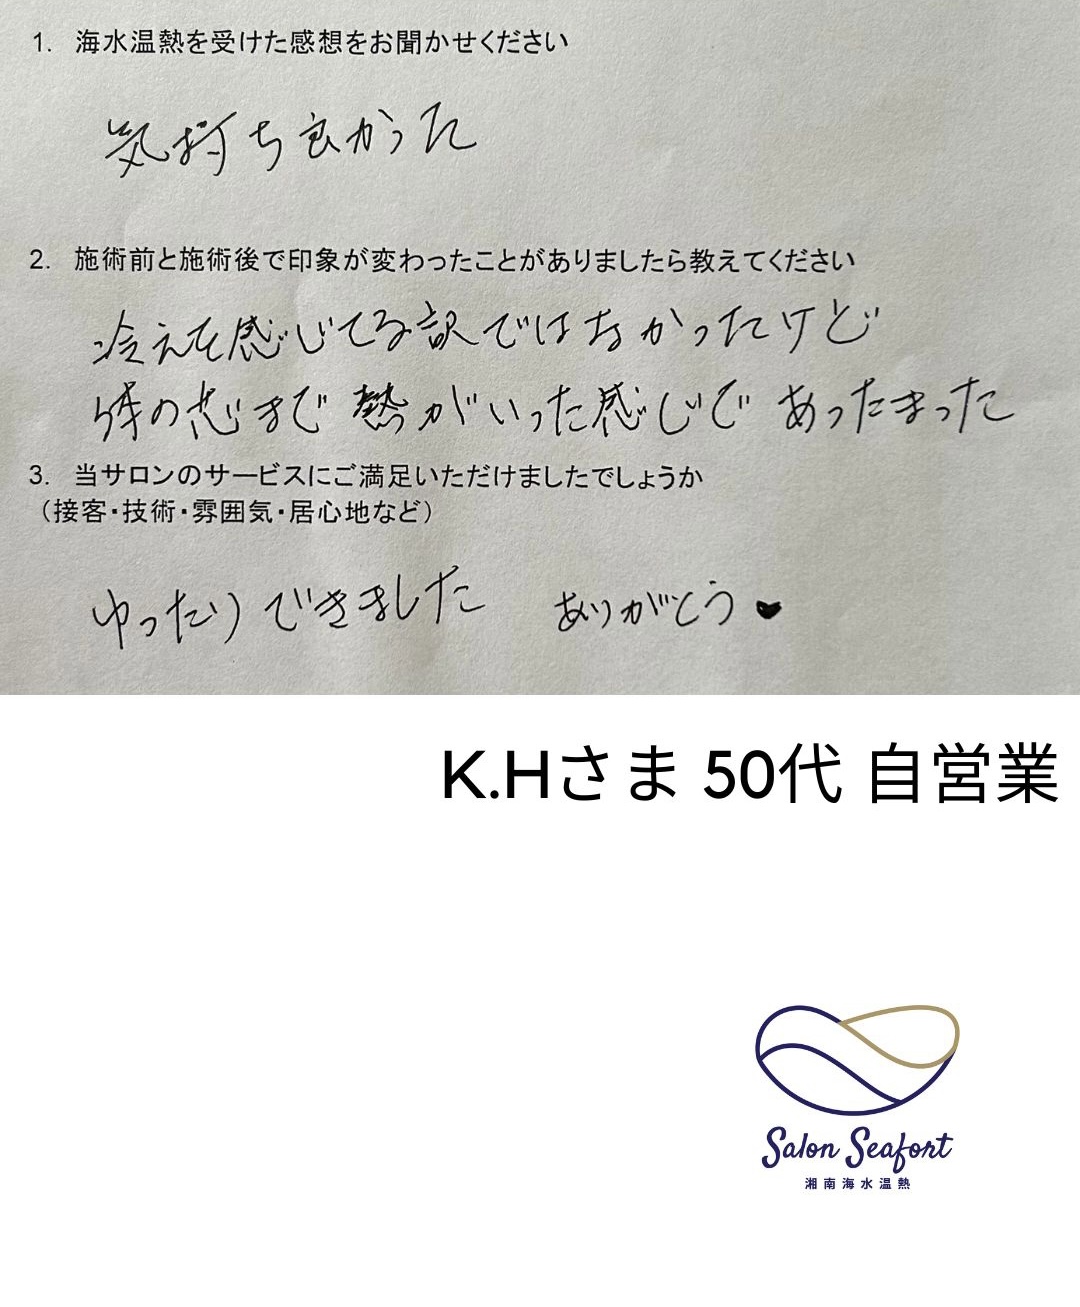 1. 海水温熱を受けた感想をお聞かせください
気持ち良かった
2. 施術前と施術後で印象が変わったことがありましたら教えてください
冷えを感じてる訳ではなかったけど
体の芯まで熱がいった感じであったまった
3. 当サロンのサービスにご満足いただけましたでしょうか
（接客・技術・雰囲気・居心地など）
ゆったりできました ありがとう♥
K.Hさま 50代 自営業
Salon Seafort
湘南海水温熱